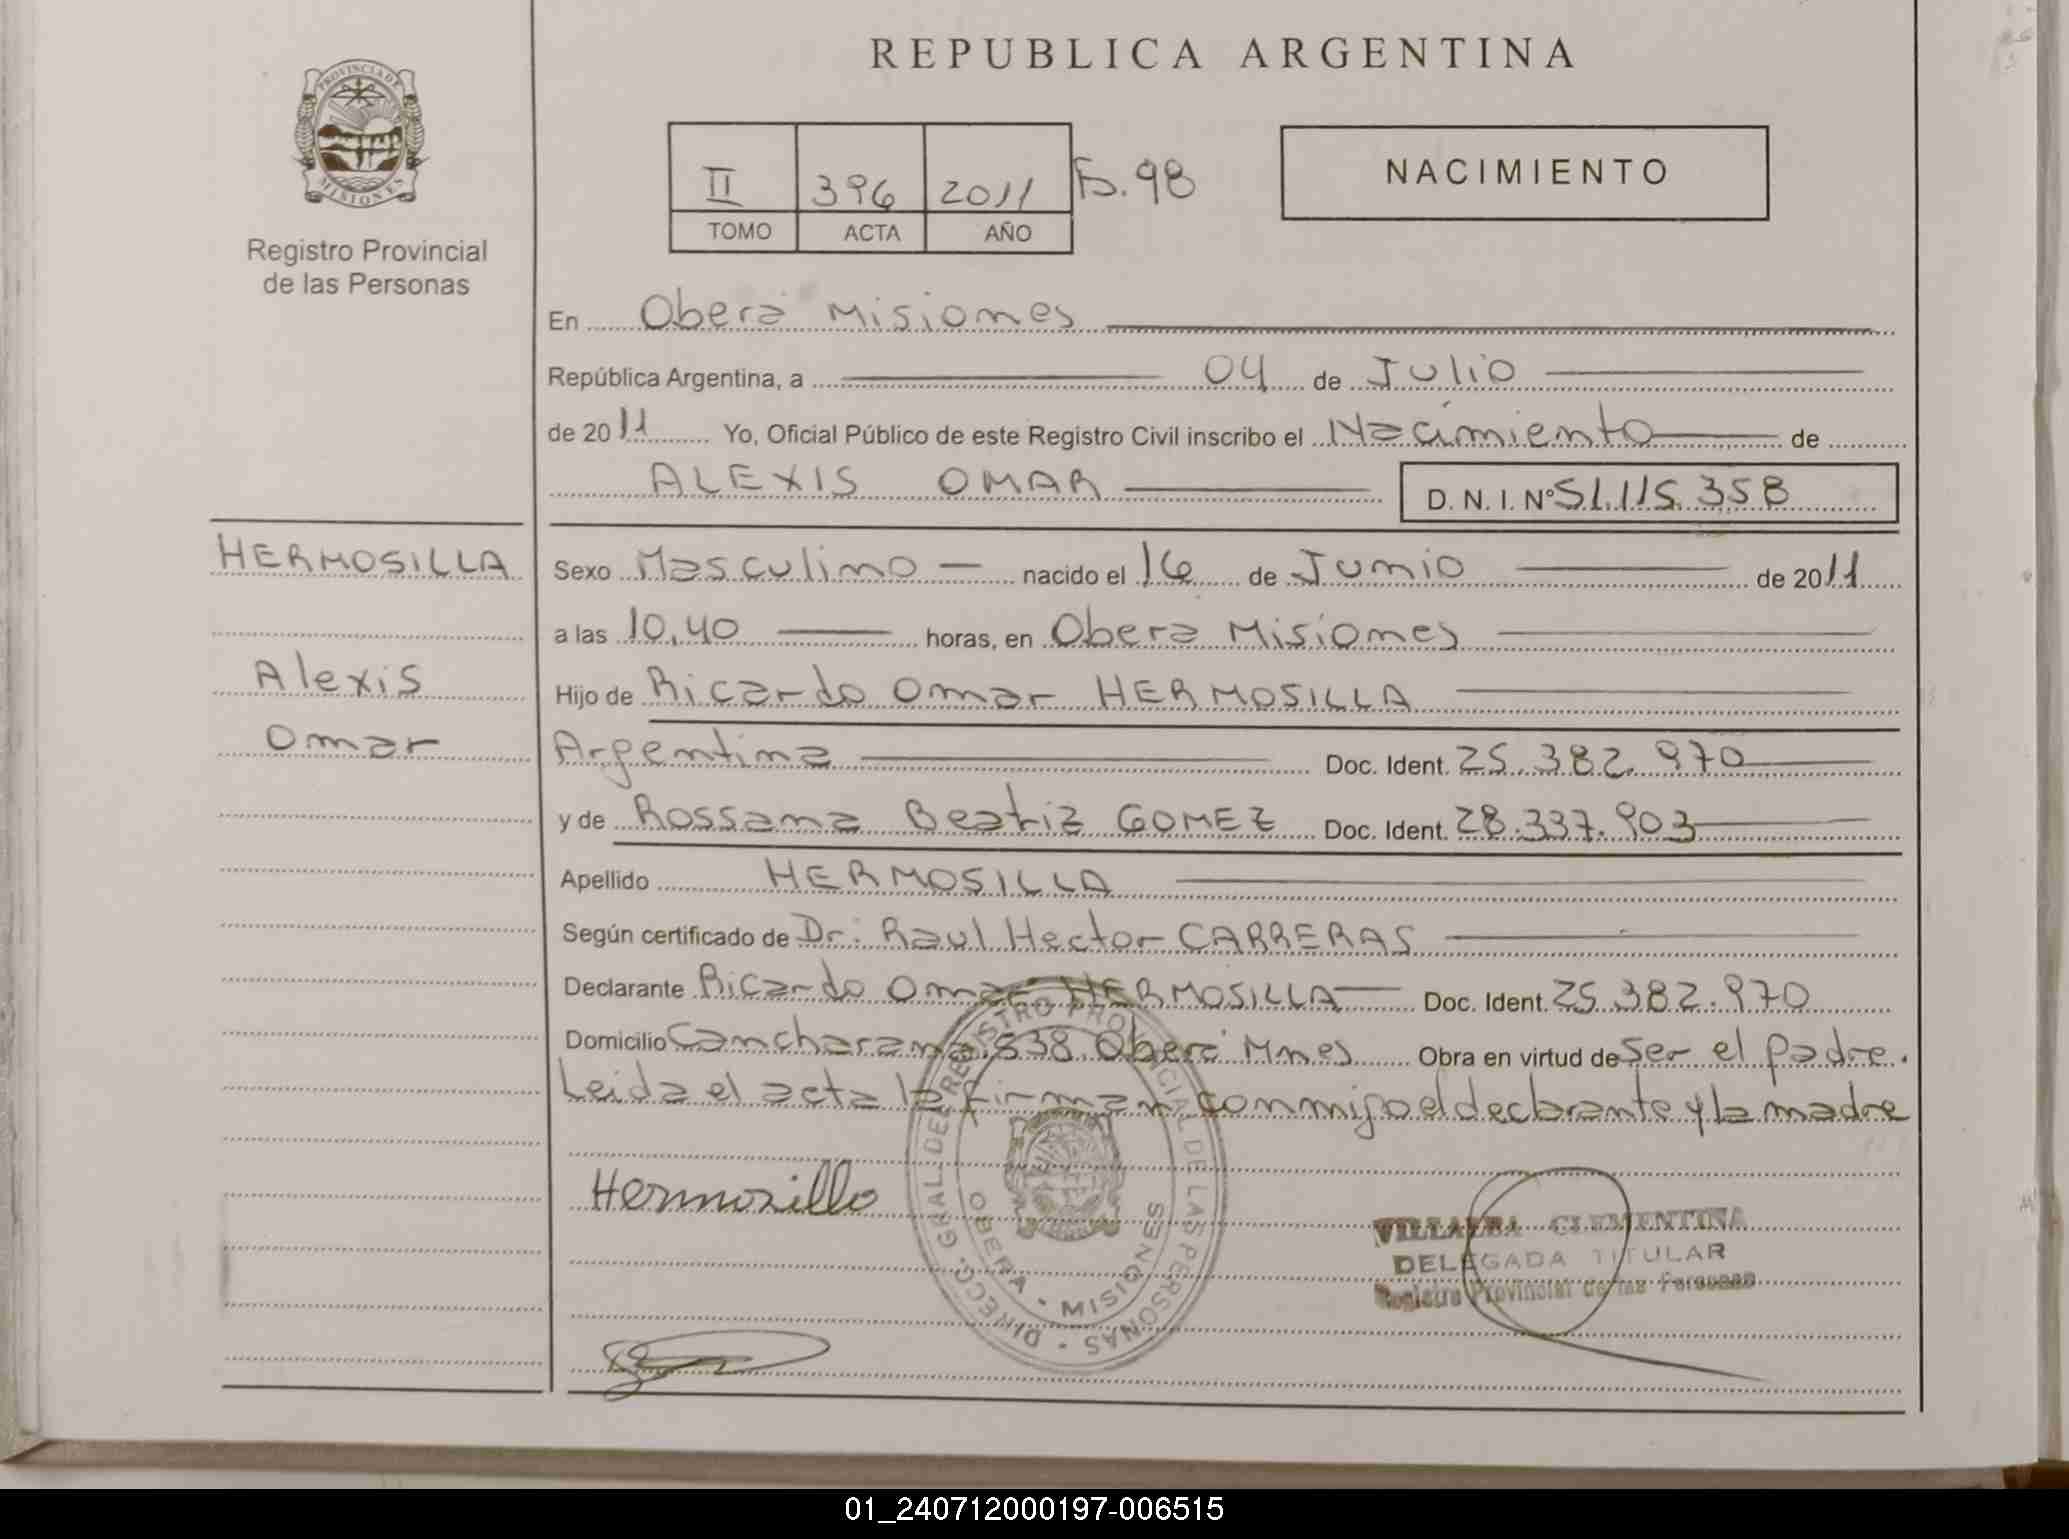 REPUBLICA ARGENTINA
PROVINCIA DE MISIONES
Registro Provincial
de las Personas
II 396 2011 Fº.98
TOMO ACTA AÑO
NACIMIENTO
En Obera Misiones
República Argentina, a 04 de Julio
de 2011 Yo, Oficial Público de este Registro Civil inscribo el Nacimiento de
ALEXIS OMAR D. N. I. Nº 51.115.358
HERMOSILLA
Alexis
Omar
Sexo Masculino nacido el 16 de Junio de 2011
a las 10,40 horas, en Obera Misiones
Hijo de Ricardo Omar HERMOSILLA
Argentina Doc. Ident. 25.382.970
y de Rossana Beatriz GOMEZ Doc. Ident. 28.337.903
Apellido HERMOSILLA
Según certificado de Dr: Raul Hector CARRERAS
Declarante Ricardo Omar HERMOSILLA Doc. Ident. 25.382.970
Domicilio Cancharana 838 Obera Mnes Obra en virtud de Ser el padre.
Leida el acta la firman conmigo el declarante y la madre
Hermosilla
DIRECC. GRAL. DEL REGISTRO PROVINCIAL DE LAS PERSONAS
OBERA - MISIONES
VILLALBA CLEMENTINA
DELEGADA TITULAR
Registro Provincial de las Personas
01_240712000197-006515